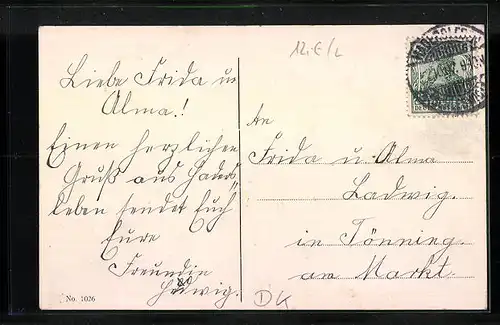 12.-€/L
Liebe Frida u.
Alma.!
Einen herzlichen
Gruß aus Haders„
leben sendet Euch
Eure
Freundin
Hedwig.
An
Frida u. Alma
Ladwig.
in Tönning.
am Markt.
DK
No. 1026